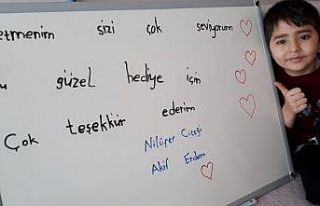 etmenim sizi çok seviyorum
güzel hediye için
Çok teşekkür ederim
Nilüfer Çiçeği
Akif Erdem